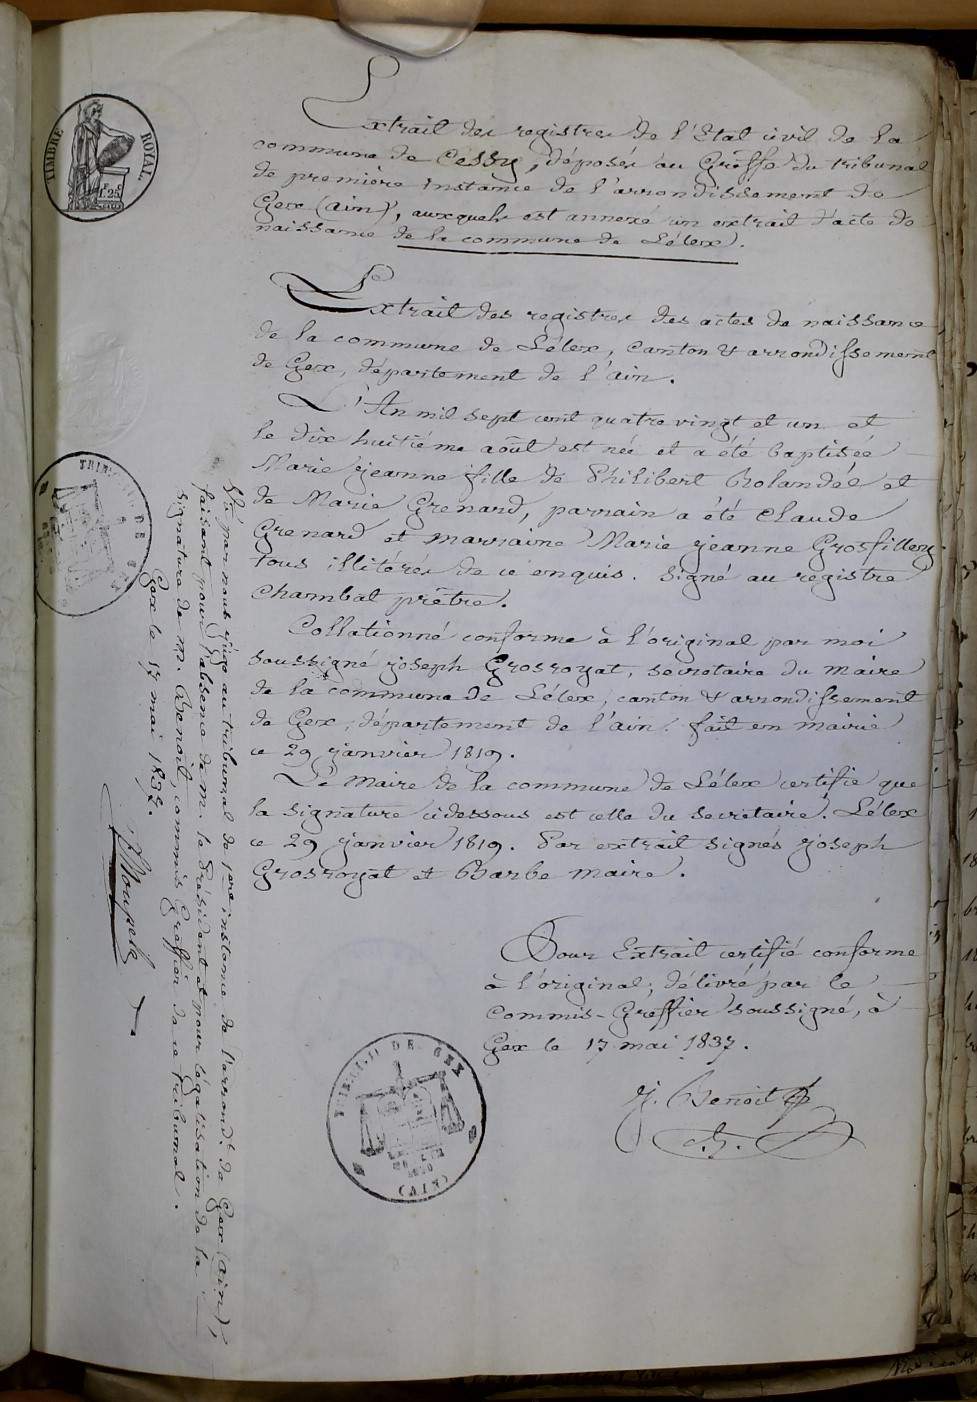 TIMBRE ROYAL.
1F 25C
Extrait des registres de l'Etat civil de la
commune de Cessy, déposés au Greffe du tribunal
de première instance de l'arrondissement de
Gex (ain), auxquels est annexé un extrait d'acte de
naissance de la commune de Lélex).
Extrait des registres des actes de naissance
de la commune de Lélex, canton & arrondissement
de Gex, département de l'ain.
L'An mil sept cent quatre vingt et un et
le dix huitiéme août est née et a été baptisée
Marie jeanne fille de Philibert Rolandéz et
de Marie Grenard, parrain a été Claude
Grenard et marraine Marie jeanne Grosfilley
tous illitérés de ce enquis. Signé au registre
Chambat prêtre.
Collationné conforme à l'original par moi
soussigné joseph Grosroyat, secretaire du maire
de la commune de Lélex, canton & arrondissement
de Gex, département de l'ain. fait en mairie
ce 29 janvier 1819.
Le Maire de la commune de Lélex certifie que
la signature cidessous est celle du secretaire. Lélex
ce 29 janvier 1819. Par extrait signés joseph
Grosroyat et Barbe maire.
Pour Extrait certifié conforme
à l'original, délivré par le
Commis-Greffier soussigné, à
Gex le 17 mai 1837.
J. Benoit
C. G.
TRIBUNAL DE GEX
(AIN)
TRIBUNAL DE
Vu par nous juge au tribunal de 1ere instance de l'arrond.t de Gex (ain),
faisant pour l'absence de M. le Président et pour légalisation de la
signature de M. Benoit, commis Greffier de ce tribunal.
Gex le 17 mai 1837.